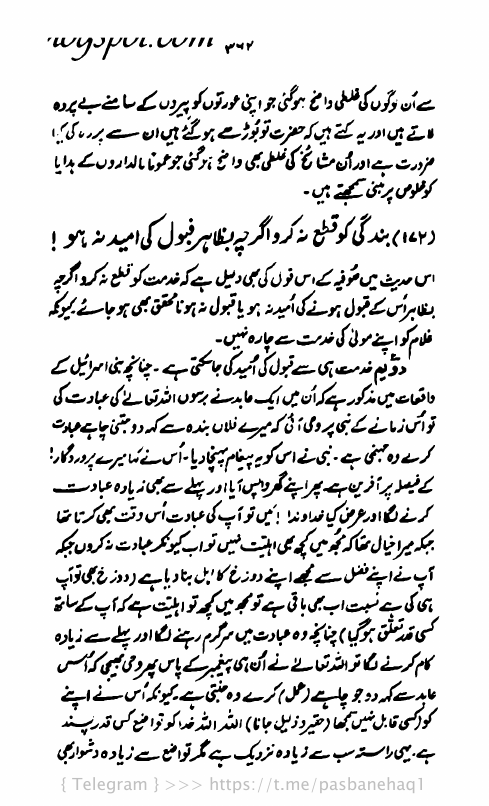 ۳۶۲
سے اُن لوگوں کی غلطی واضح ہوگئی جو اپنی عورتوں کو پیروں کے سامنے بے پردہ
لاتے ہیں اور یہ کہتے ہیں کہ حضرت تو بوڑھے ہو گئے ہیں ان سے پردہ کی کیا
ضرورت ہے اور اُن مشائخ کی غلطی بھی واضح ہوگئی جو عموماً مالداروں کے ہدایا
کو خلوص پر مبنی سمجھتے ہیں۔
(۱۷۲) بندگی کو قطع نہ کرو اگرچہ بظاہر قبول کی امید نہ ہو !
اس حدیث میں صوفیہ کے اس قول کی بھی دلیل ہے کہ خدمت کو قطع نہ کرو اگرچہ
بظاہر اُس کے قبول ہونے کی اُمید نہ ہو یا قبول نہ ہونا محقق بھی ہو جائے کیونکہ
غلام کو اپنے مولیٰ کی خدمت سے چارہ نہیں۔
دوئیم خدمت ہی سے قبول کی اُمید کی جاسکتی ہے۔ چنانچہ بنی اسرائیل کے
واقعات میں مذکور ہے کہ اُن میں ایک عابد نے برسوں اللہ تعالےٰ کی عبادت کی
تو اُس زمانے کے نبی پر وحی آئی کہ میرے فلاں بندہ سے کہہ دو جتنی چاہے عبادت
کرے وہ جہنمی ہے۔ نبی نے اس کو یہ پیغام پہنچا دیا۔ اُس نے کہا میرے پروردگار!
کے فیصلہ پر آفرین ہے۔ پھر اپنے گھر واپس آیا اور پہلے سے بھی زیادہ عبادت
کرنے لگا اور عرض کیا خداوندا ! میں تو آپ کی عبادت اُس وقت بھی کرتا تھا
جبکہ میرا خیال تھا کہ مجھ میں کچھ بھی اہلیت نہیں تو اب کیونکر عبادت نہ کروں جبکہ
آپ نے اپنے فضل سے مجھے اپنے دوزخ کا اہل بنا دیا ہے (دوزخ بھی تو آپ
ہی کی ہے نسبت اب بھی باقی ہے تو مجھ میں کچھ تو اہلیت ہے کہ آپ کے ساتھ
کسی قدر تعلق ہوگیا) چنانچہ وہ عبادت میں سرگرم رہنے لگا اور پہلے سے زیادہ
کام کرنے لگا تو اللہ تعالےٰ نے اُن ہی پیغمبر کے پاس پھر وحی بھیجی کہ اُس
عابد سے کہہ دو جو چاہے (عمل) کرے وہ جنتی ہے۔ کیونکہ اُس نے اپنے
کو (کسی قابل نہیں سمجھا (حقیر و ذلیل جانا) اللہ اللہ خدا کو تواضع کس قدر پسند
ہے۔ یہی راستہ سب سے زیادہ نزدیک ہے مگر تواضع سے زیادہ دشوار بھی
{ Telegram } >>> https://t.me/pasbanehaq1